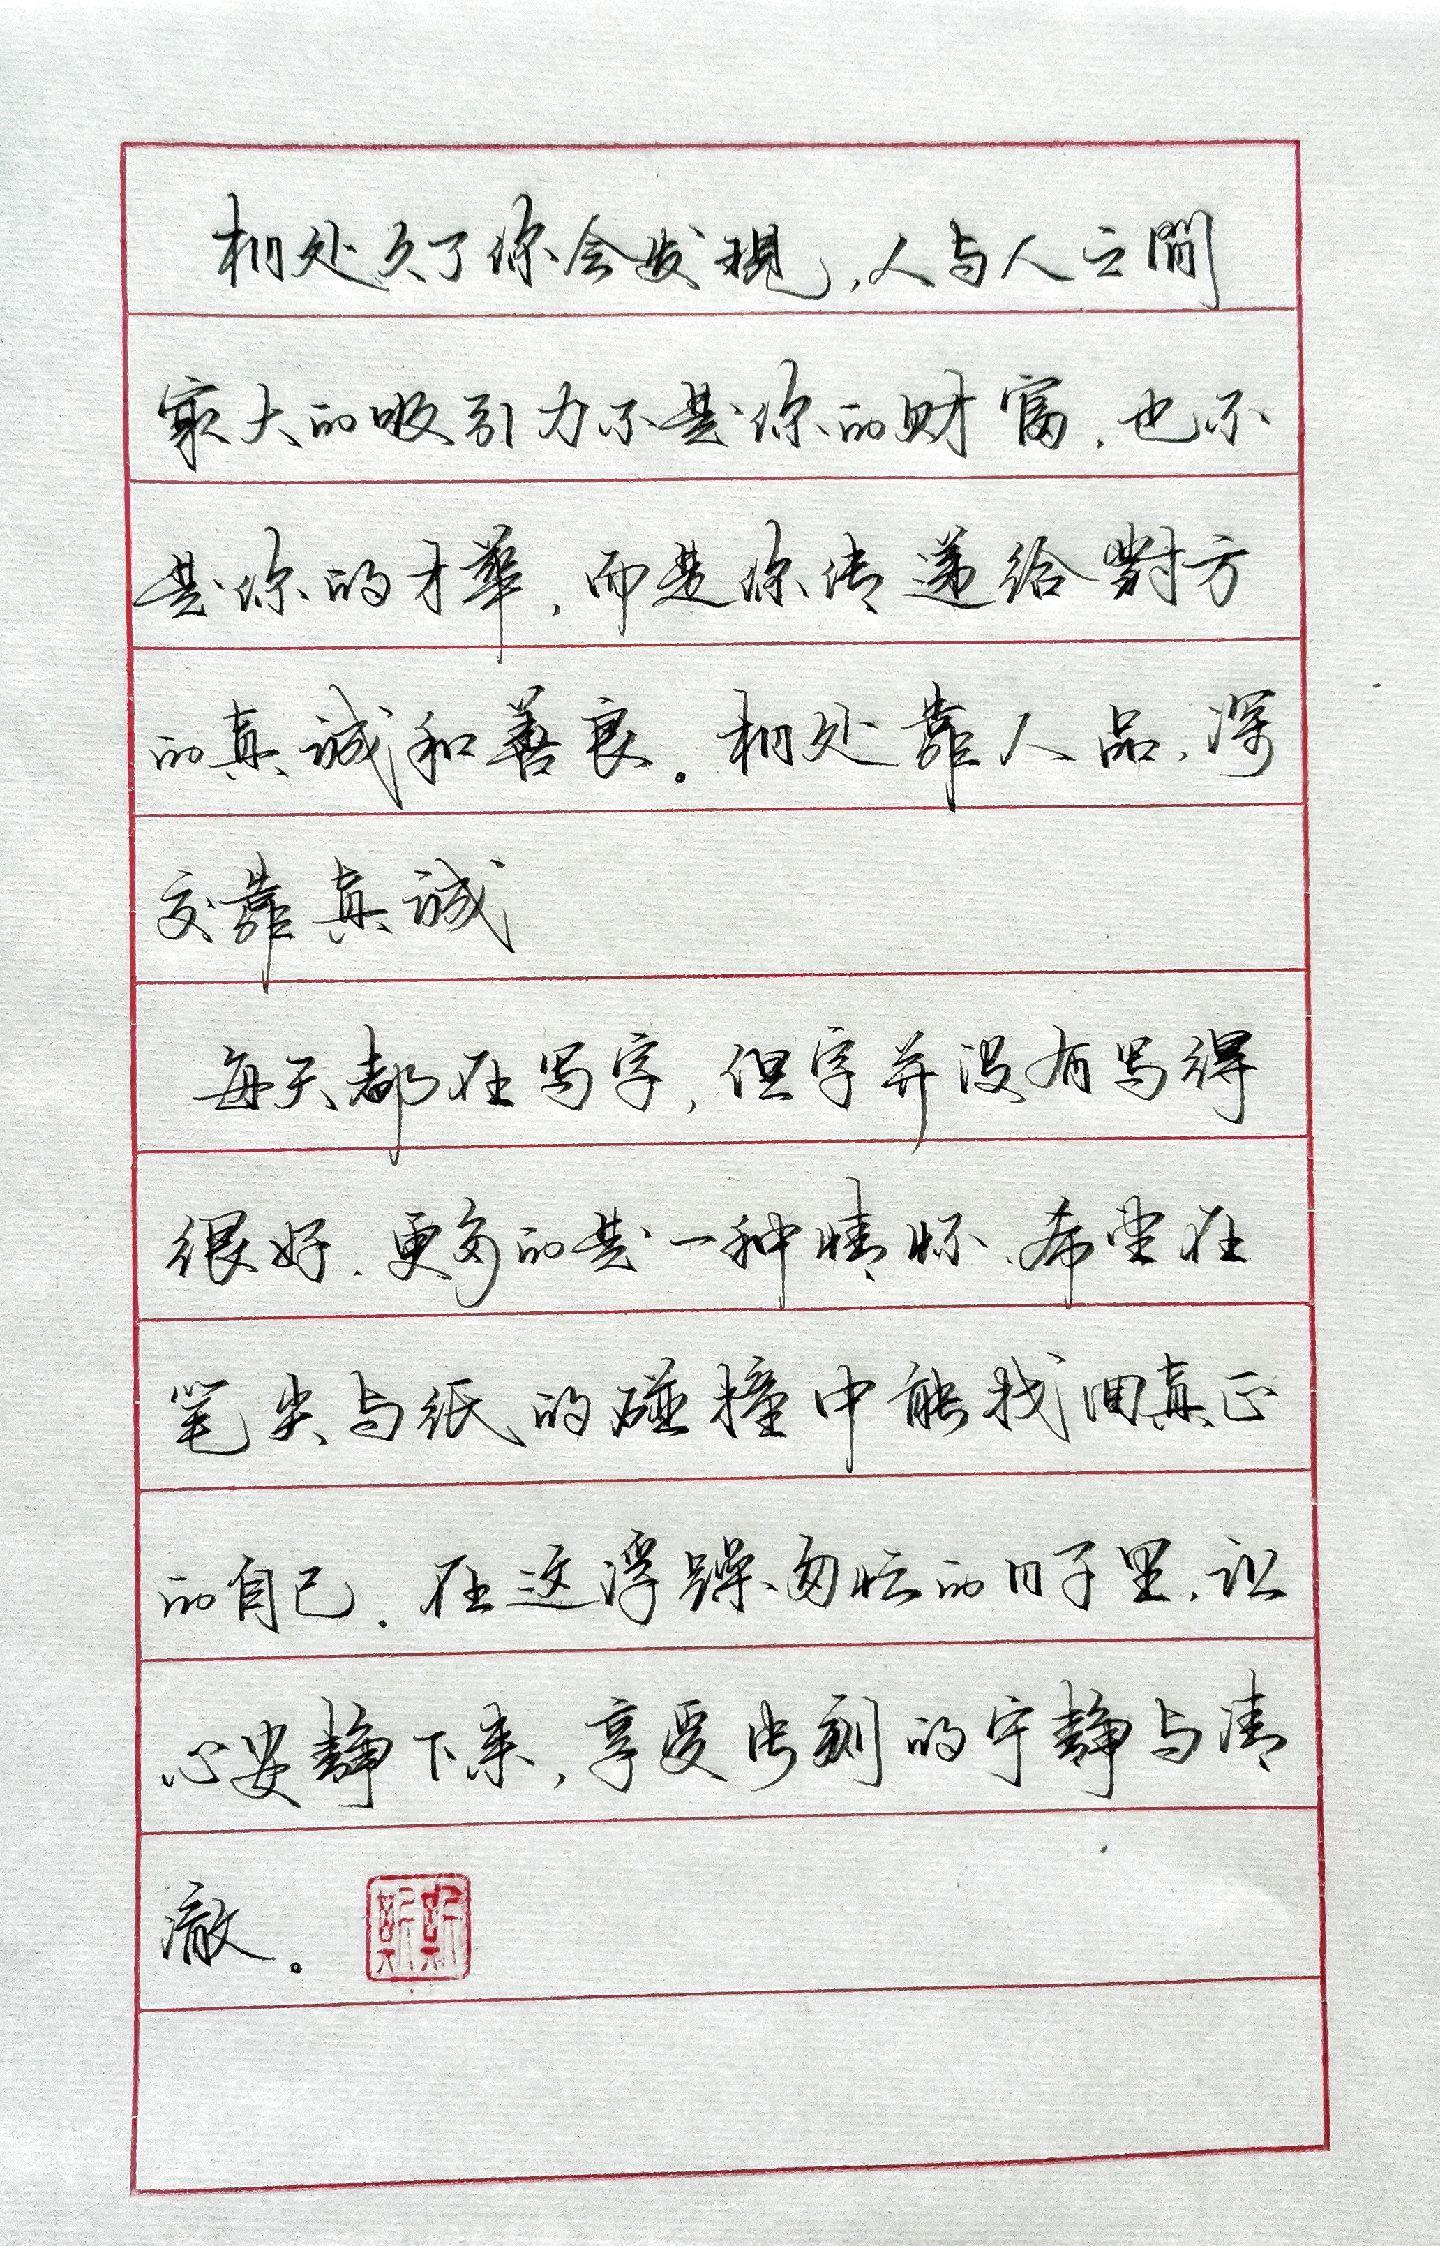 相处久了你会发現，人与人之間
最大的吸引力不是你的财富，也不
是你的才華，而是你传递给對方
的真诚和善良。相处靠人品，深
交靠真诚
每天都在写字，但字并没有写得
很好，更多的是一种情怀，希望在
笔尖与纸的碰撞中能找回真正
的自己．在这浮躁、匆忙的日子里，让
心安静下来，享受片刻的宁静与清
澈。